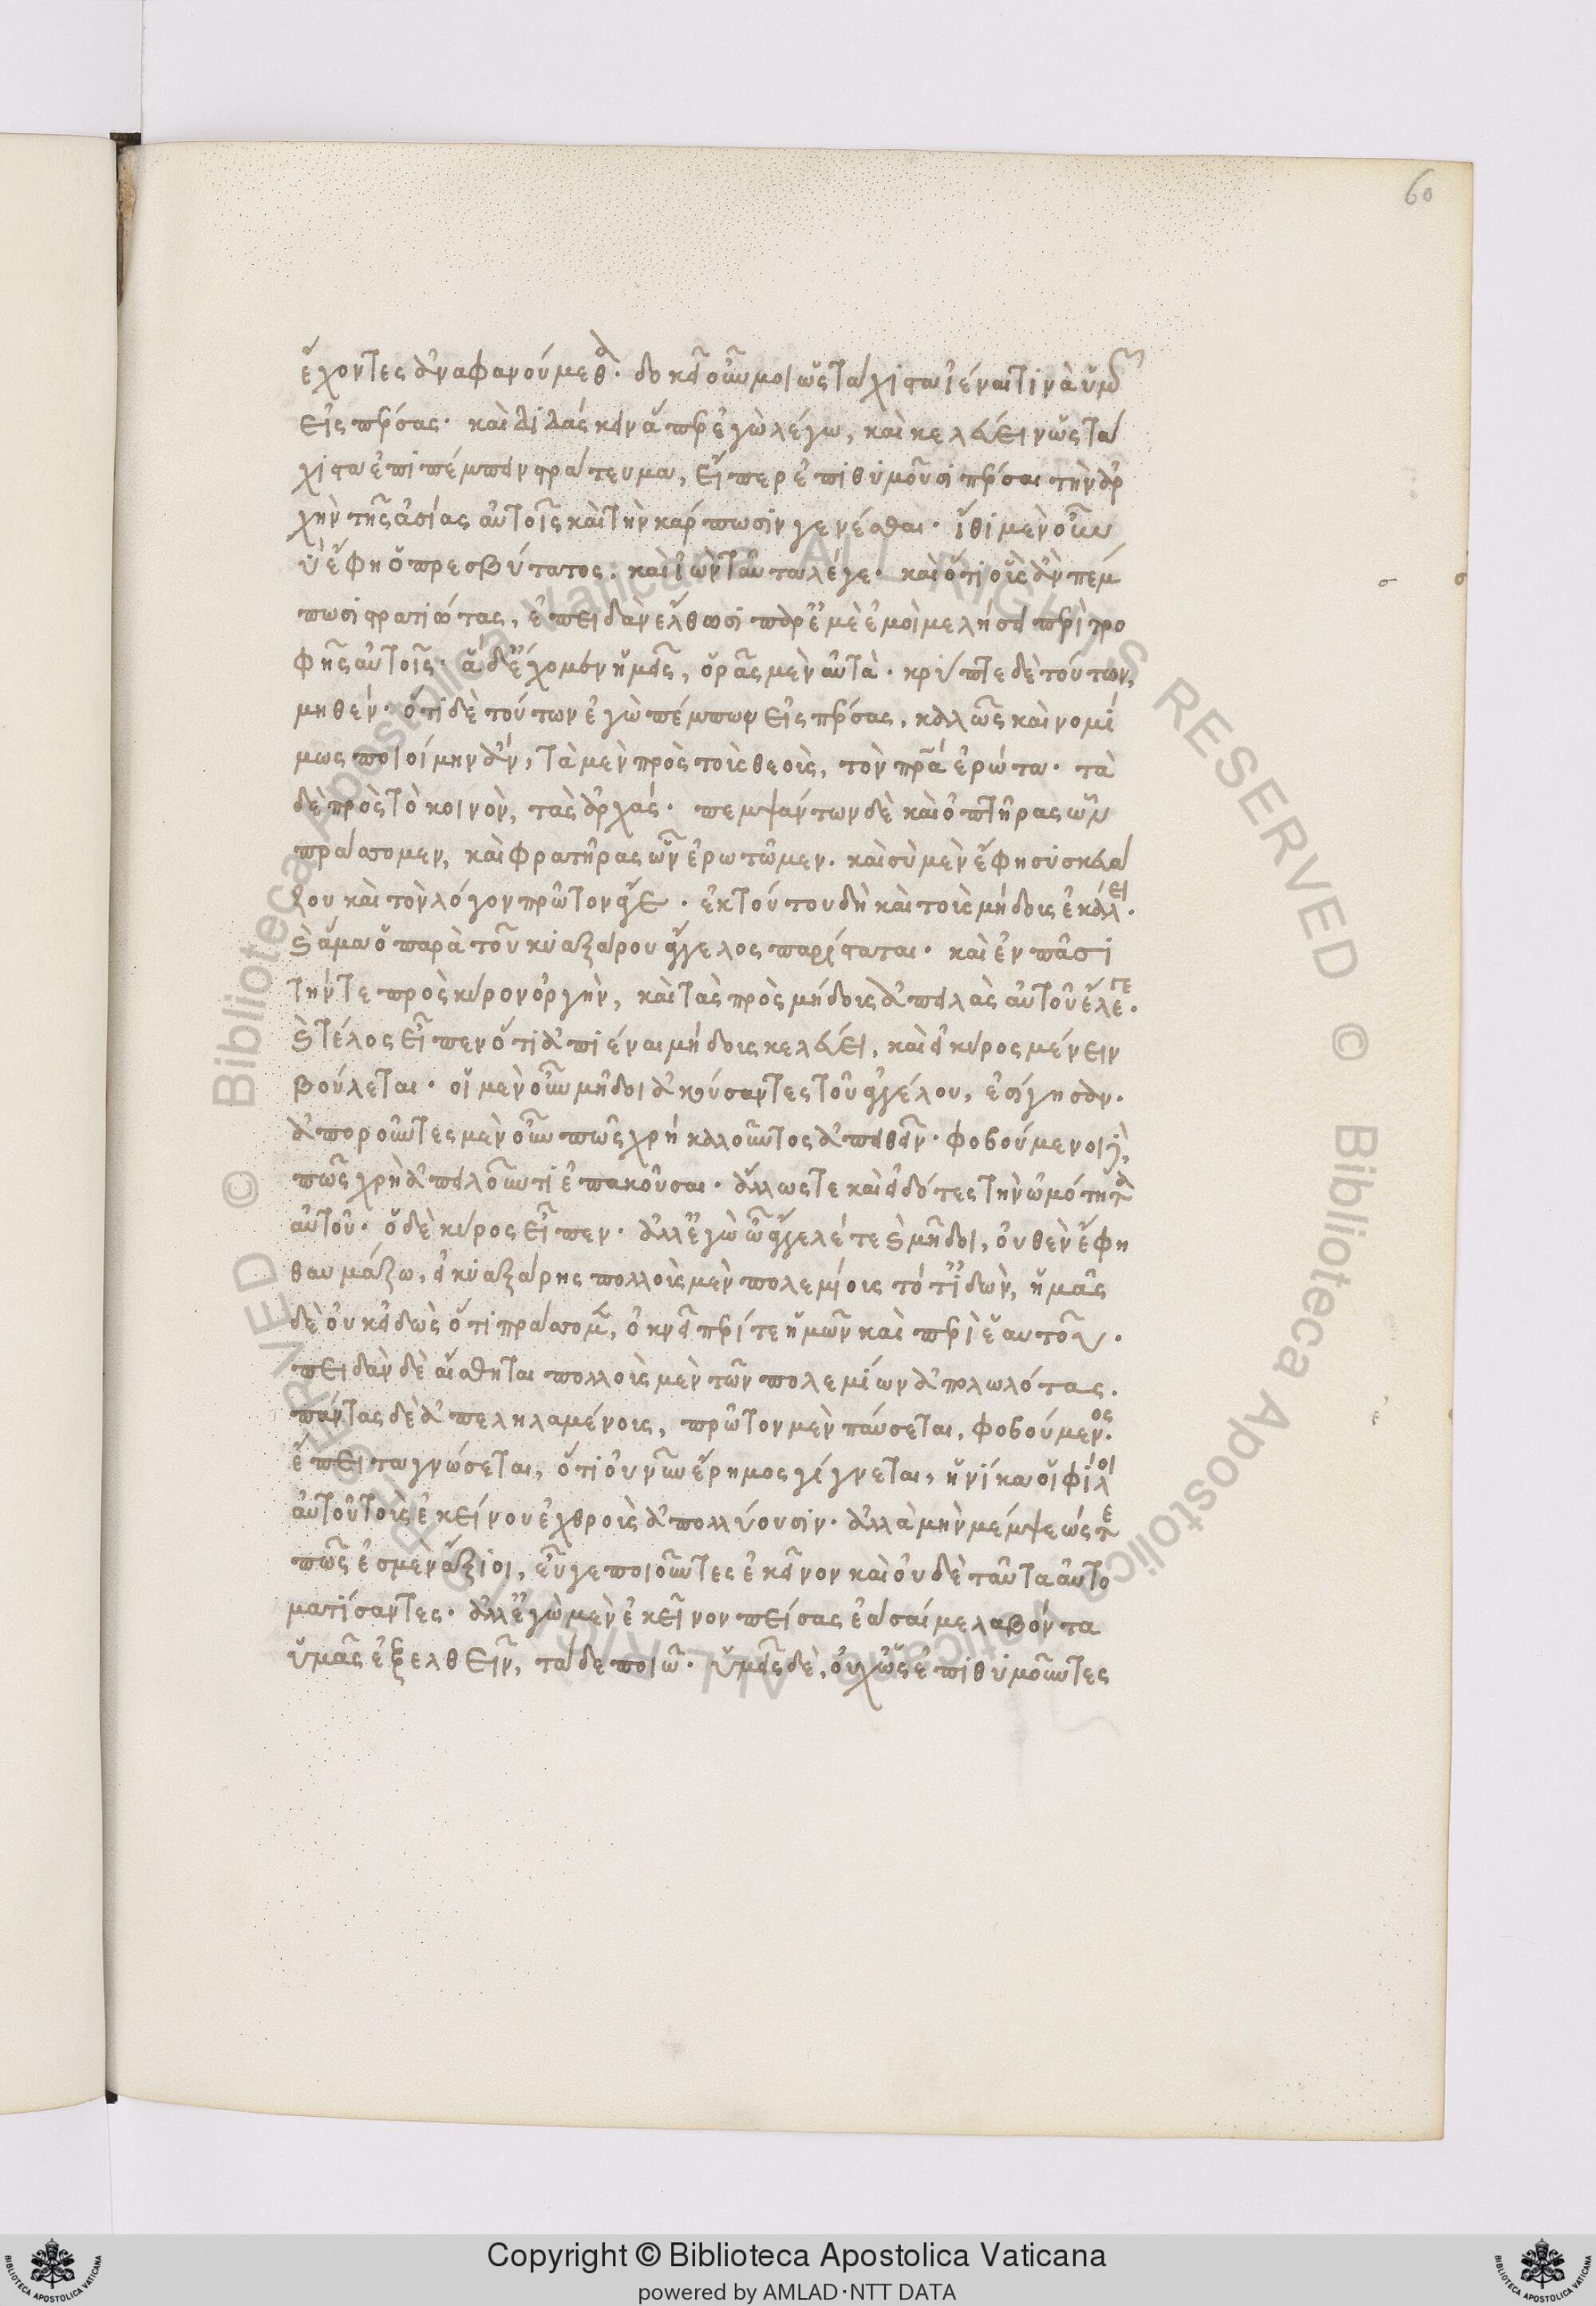 60
ἔχοντες ἀναφανούμεθα. δοκεῖ οὖν μοι ὡς τάχιστα ἰέναι τινὰ ὑμῶν
εἰς πέρσας. καὶ διδάσκειν ἅπερ ἐγὼ λέγω, καὶ κελεύειν ὡς τά
χιστα ἐπιπέμπειν στράτευμα, εἴπερ ἐπιθυμοῦσι πέρσαι τὴν ἀρ
χὴν τῆς ἀσίας αὐτοῖς καὶ τὴν κάρπωσιν γενέσθαι. ἴθι μὲν οὖν
σὺ ἔφη ὁ πρεσβύτατος. καὶ ἰὼν ταῦτα λέγε. καὶ ὅτι οὓς ἂν πέμ
πωσι στρατιώτας, ἐπειδὰν ἔλθωσι παρ' ἐμὲ ἐμοὶ μελήσει περὶ τρο
φῆς αὐτοῖς. ἃ δ' ἔχομεν ἡμεῖς, ὁρᾷς μὲν αὐτὰ. κρύπτε δὲ τούτων,
μηθέν. ὅτι δὲ τούτων ἐγὼ πέμπων εἰς πέρσας, καλῶς καὶ νομί
μως ποιοίμην ἄν, τὰ μὲν πρὸς τοὺς θεοὺς, τὸν πρα ἐρώτα. τὰ
δὲ πρὸς τὸ κοινὸν, τὰς ἀρχάς. πεμψάντων δὲ καὶ ὀπτῆρας ὧν
πράττομεν, καὶ φρατῆρας ὧν ἐρωτῶμεν. καὶ σὺ μὲν ἔφη συσκευά
ζου καὶ τὸν λόχον πρῶτον ἄγε. ἐκ τούτου δὴ καὶ τοὺς μήδους ἐκάλει.
καὶ ἅμα ὁ παρὰ τοῦ κυαξάρου ἄγγελος παρίσταται. καὶ ἐν πᾶσι
τήν τε πρὸς κῦρον ὀργὴν, καὶ τὰς πρὸς μήδους ἀπειλὰς αὐτοῦ ἔλεγε.
καὶ τέλος εἶπεν ὅτι ἀπιέναι μήδους κελεύει, καὶ εἰ κῦρος μένειν
βούλεται. οἱ μὲν οὖν μῆδοι ἀκούσαντες τοῦ ἀγγέλου, ἐσίγησαν.
ἀποροῦντες μὲν οὖν πῶς χρὴ καλοῦντος ἀπειθεῖν. φοβούμενοι δὲ,
πῶς χρὴ ἀπειλοῦντι ἐπακοῦσαι. ἄλλως τε καὶ εἰδότες τὴν ὠμότητα
αὐτοῦ. ὁ δὲ κῦρος εἶπεν. ἀλλ' ἐγὼ ὦ ἄγγελέ τε καὶ μῆδοι, οὐθὲν ἔφη
θαυμάζω, εἰ κυαξάρης πολλοὺς μὲν πολεμίους τότ' ἰδὼν, ἡμᾶς
δὲ οὐκ εἰδὼς ὅτι πράττομεν, ὀκνεῖ περί τε ἡμῶν καὶ περὶ ἑαυτοῦ.
πειδὰν δὲ αἴσθηται πολλοὺς μὲν τῶν πολεμίων ἀπολωλότας.
πάντας δὲ ἀπεληλαμένους, πρῶτον μὲν παύσεται, φοβούμενος.
ἔπειτα γνώσεται, ὅτι οὐ νῦν ἔρημος γίγνεται, ἡνίκα οἱ φίλοι
αὐτοῦ τοὺς ἐκείνου ἐχθροὺς ἀπολλύουσιν. ἀλλὰ μὴν μέμψεώς τε
πῶς ἐσμὲν ἄξιοι, εὖ γε ποιοῦντες ἐκεῖνον καὶ οὐδὲ ταῦτα αὐτο
ματίσαντες. ἀλλ' ἐγὼ μὲν ἐκεῖνον πείσας ἐᾶσαί με λαβόντα
ὑμᾶς ἐξελθεῖν, τάδε ποιῶ. ὑμεῖς δὲ, οὐχ ὡς ἐπιθυμοῦντες
Copyright © Biblioteca Apostolica Vaticana
powered by AMLAD·NTT DATA